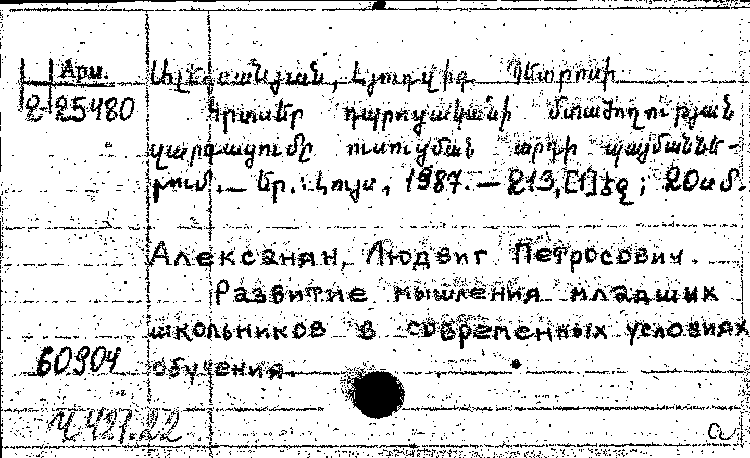 Арм.
2 25480
Ալեքսանյան, Լյուդվիգ Պետրոսի
Կրտսեր դպրոցականի մտածողության
զարգացումը ուսուցման արդի պայմաննե-
րում. — Եր.: Լույս, 1987. — 213,[1] էջ ; 20սմ.
Алексанян, Людвиг Петросович.
Развитие мышления младших
школьников в современных условиях
обучения.
60904
Ч.421.22
а